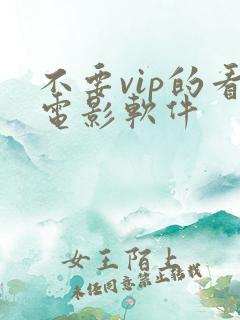 不要vip的看
電影軟件
女王陌上
未任同意禁止轉載